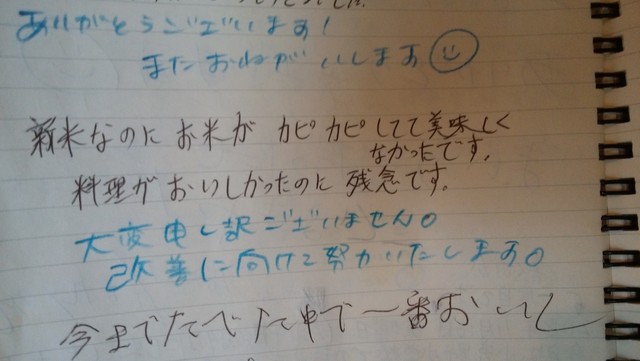 ありがとうございます!
またおねがいします
新米なのにお米がカピカピしてて美味しく
なかったです。
料理がおいしかったのに残念です。
大変申し訳ございません。
改善に向けて努力いたします。
今までたべた中で一番おいし